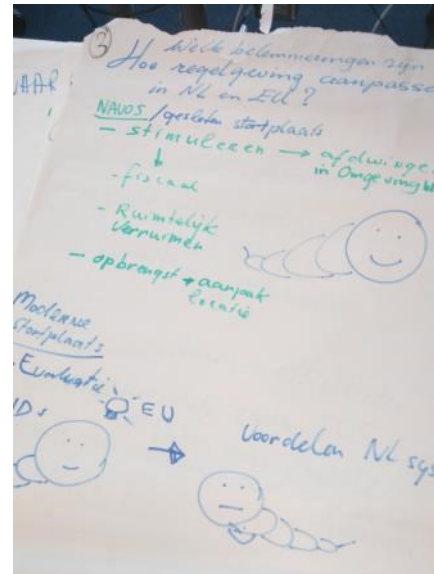 ③
Welke belemmeringen zijn
Hoe regelgeving aanpasse
in NL en EU?
NAVOS / gesloten stortplaats
- stimuleren → afdwinge
in Omgevingsw
- fiscaal
- Ruimtelijk
verruimen
- opbrengst + aanpak
locatie
JAAR
Moderne
stortplaats
- Evaluatie
EU
IDS
Voordelen NL sys